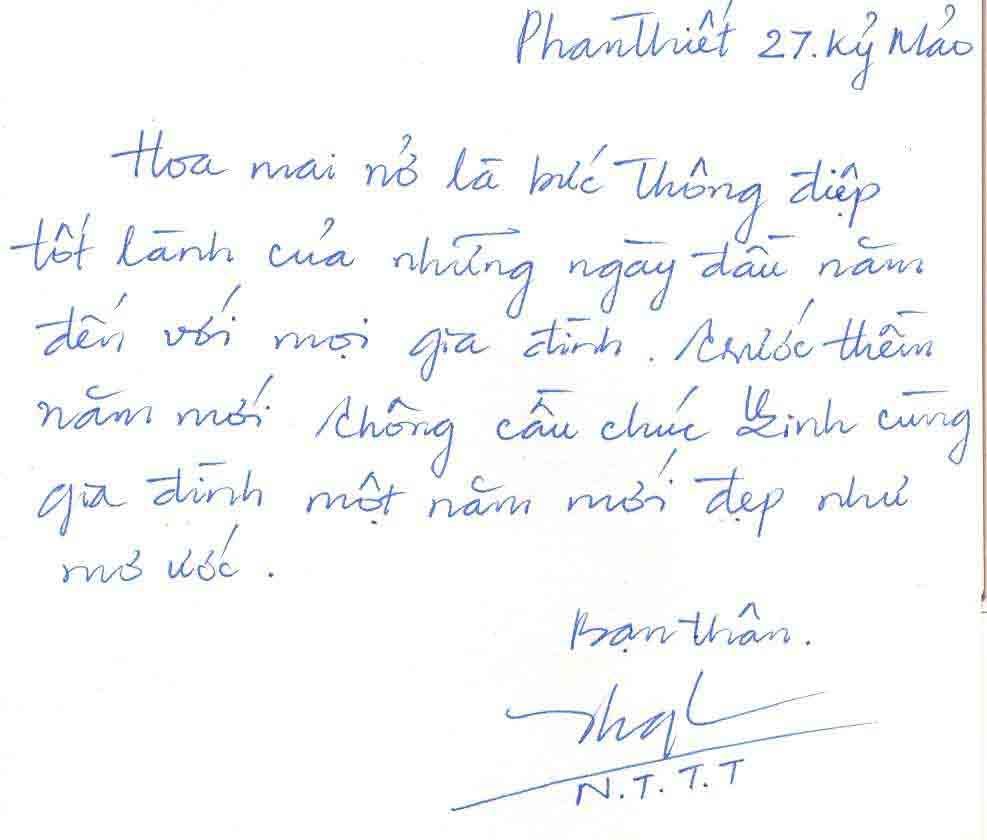 Phan Thiết 27. Kỷ Mảo
Hoa mai nở là bức thông điệp
tốt lành của những ngày đầu năm
đến với mọi gia đình. trước thềm
năm mới chông cầu chúc Vinh cùng
gia đình một năm mới đẹp như
mơ ước.
Bạn thân.
N.T.T.T